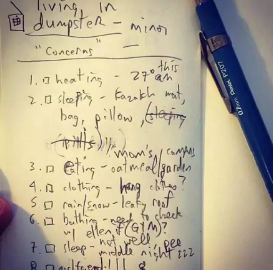 living In
dumpster - minor
"Concerns"
this
1. heating - 27°
2. sleeping - Kazakh mat,
bag, pillow, (sleeping
pills)
mom's/campus
3. eting - oatmeal/garden
4. clothing - hang clothes?
5. rain/snow - leaky roof
6. bathing - need to check
w/ ellen if (GYM)?
not well
7. sleep - middle night pee
8.